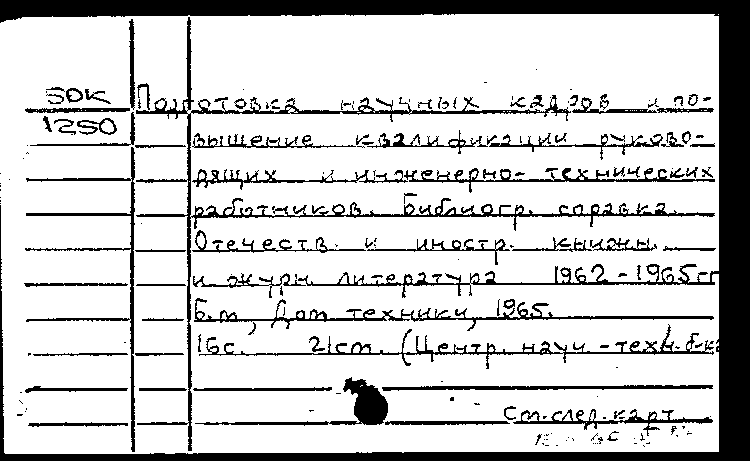 SDK Подготовка научных кадров и по-
1250 вышение квалификации руково-
дящих и инженерно-технических
работников. Библиогр. справка.
Отечеств. и иностр. книжн.
и журн. литература 1962-1965гг
Б.м, Дом техники, 1965.
16с. 21cm. (Центр. науч.-техн.б-ка
См.след.карт.